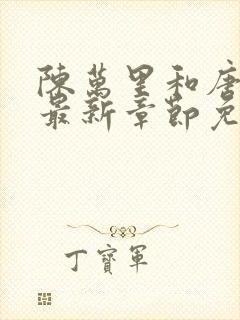 陳萬里和唐
最新章節免
丁寶軍